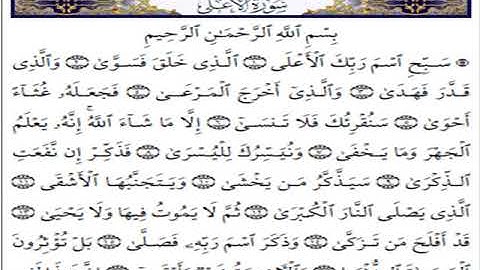 سُورَةُ الأَعْلَى
بِسْمِ ٱللَّهِ ٱلرَّحْمَٰنِ ٱلرَّحِيمِ
سَبِّحِ ٱسْمَ رَبِّكَ ٱلْأَعْلَى ١ ٱلَّذِى خَلَقَ فَسَوَّىٰ ٢ وَٱلَّذِى
قَدَّرَ فَهَدَىٰ ٣ وَٱلَّذِىٓ أَخْرَجَ ٱلْمَرْعَىٰ ٤ فَجَعَلَهُۥ غُثَآءً
أَحْوَىٰ ٥ سَنُقْرِئُكَ فَلَا تَنسَىٰٓ ٦ إِلَّا مَا شَآءَ ٱللَّهُۚ إِنَّهُۥ يَعْلَمُ
ٱلْجَهْرَ وَمَا يَخْفَىٰ ٧ وَنُيَسِّرُكَ لِلْيُسْرَىٰ ٨ فَذَكِّرْ إِن نَّفَعَتِ
ٱلذِّكْرَىٰ ٩ سَيَذَّكَّرُ مَن يَخْشَىٰ ١٠ وَيَتَجَنَّبُهَا ٱلْأَشْقَى ١١
ٱلَّذِى يَصْلَى ٱلنَّارَ ٱلْكُبْرَىٰ ١٢ ثُمَّ لَا يَمُوتُ فِيهَا وَلَا يَحْيَىٰ ١٣
قَدْ أَفْلَحَ مَن تَزَكَّىٰ ١٤ وَذَكَرَ ٱسْمَ رَبِّهِۦ فَصَلَّىٰ ١٥ بَلْ تُؤْثِرُونَ